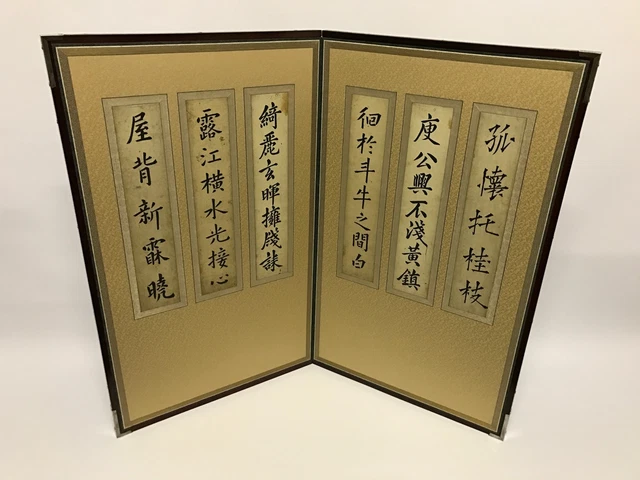 孤懷托桂枝
庾公興不淺黃鎮
徊於斗牛之間白
綺麗玄暉擁牋誄
露江橫水光接心
屋背新霖曉